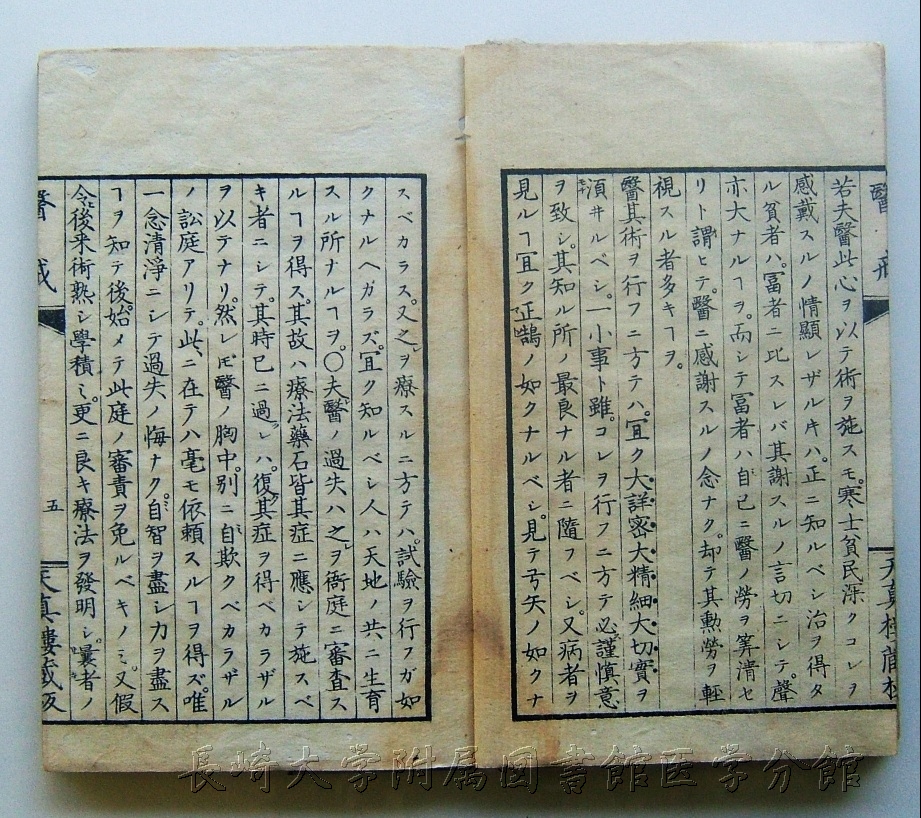 醫戒
天真樓蔵板
若夫醫此心ヲ以テ術ヲ施スモ。寒士貧民深クコレヲ
感戴スルノ情顯レザルキハ。正ニ知ルベシ治ヲ得タ
ル貧者ハ。冨者ニ比スレバ其謝スルノ言切ニシテ。聲
亦大ナルヿヲ。而シテ冨者ハ自已ニ醫ノ勞ヲ筭清セ
リト謂ヒテ。醫ニ感謝スルノ念ナク。却テ其勲勞ヲ輕
視スル者多キヿヲ。
醫其術ヲ行フニ方テハ。宜ク大詳密大精細大切實ヲ
須ヰルベシ。一小事ト雖。コレヲ行フニ方テ必謹愼意
ヲ致シ。其知ル所ノ最良ナル者ニ隨フベシ。又病者ヲ
見ルヿ宜ク正鵠ノ如クナルベシ。見テ弓矢ノ如クナ
スベカラス。又之ヲ療スルニ方テハ。試驗ヲ行フガ如
クナルヘガラズ。宜ク知ルベシ人ハ天地ノ共ニ生育
スル所ナルヿヲ。〇夫醫ノ過失ハ之ヲ衙庭ニ審査ス
ルヿヲ得ス。其故ハ療法藥石皆其症ニ應シテ施スベ
キ者ニシテ。其時已ニ過レハ。復其症ヲ得ベカラザル
ヲ以テナリ。然レ𪜈醫ノ胸中。別ニ自欺クベカラザル
ノ訟庭アリテ。此ニ在テハ毫モ依頼スルヿヲ得ズ。唯
一念清淨ニシテ過失ノ悔ナク。自智ヲ盡シ力ヲ盡ス
ヿヲ知テ後。始メテ此庭ノ審責ヲ免ルベキノミ。又假
令後来術熟シ學積ミ。更ニ良キ療法ヲ發明シ。曩者ノ
醫戒
五
天真樓蔵板
長崎大学附属図書館医学分館